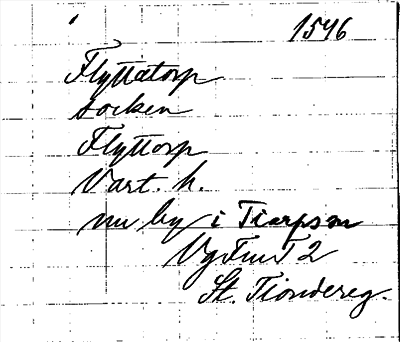 1546
Flyttatorp
socken
Flyttorp
Vart. h.
nu by i Tiarpsn
VgFmT 2
St. Tiondereg.